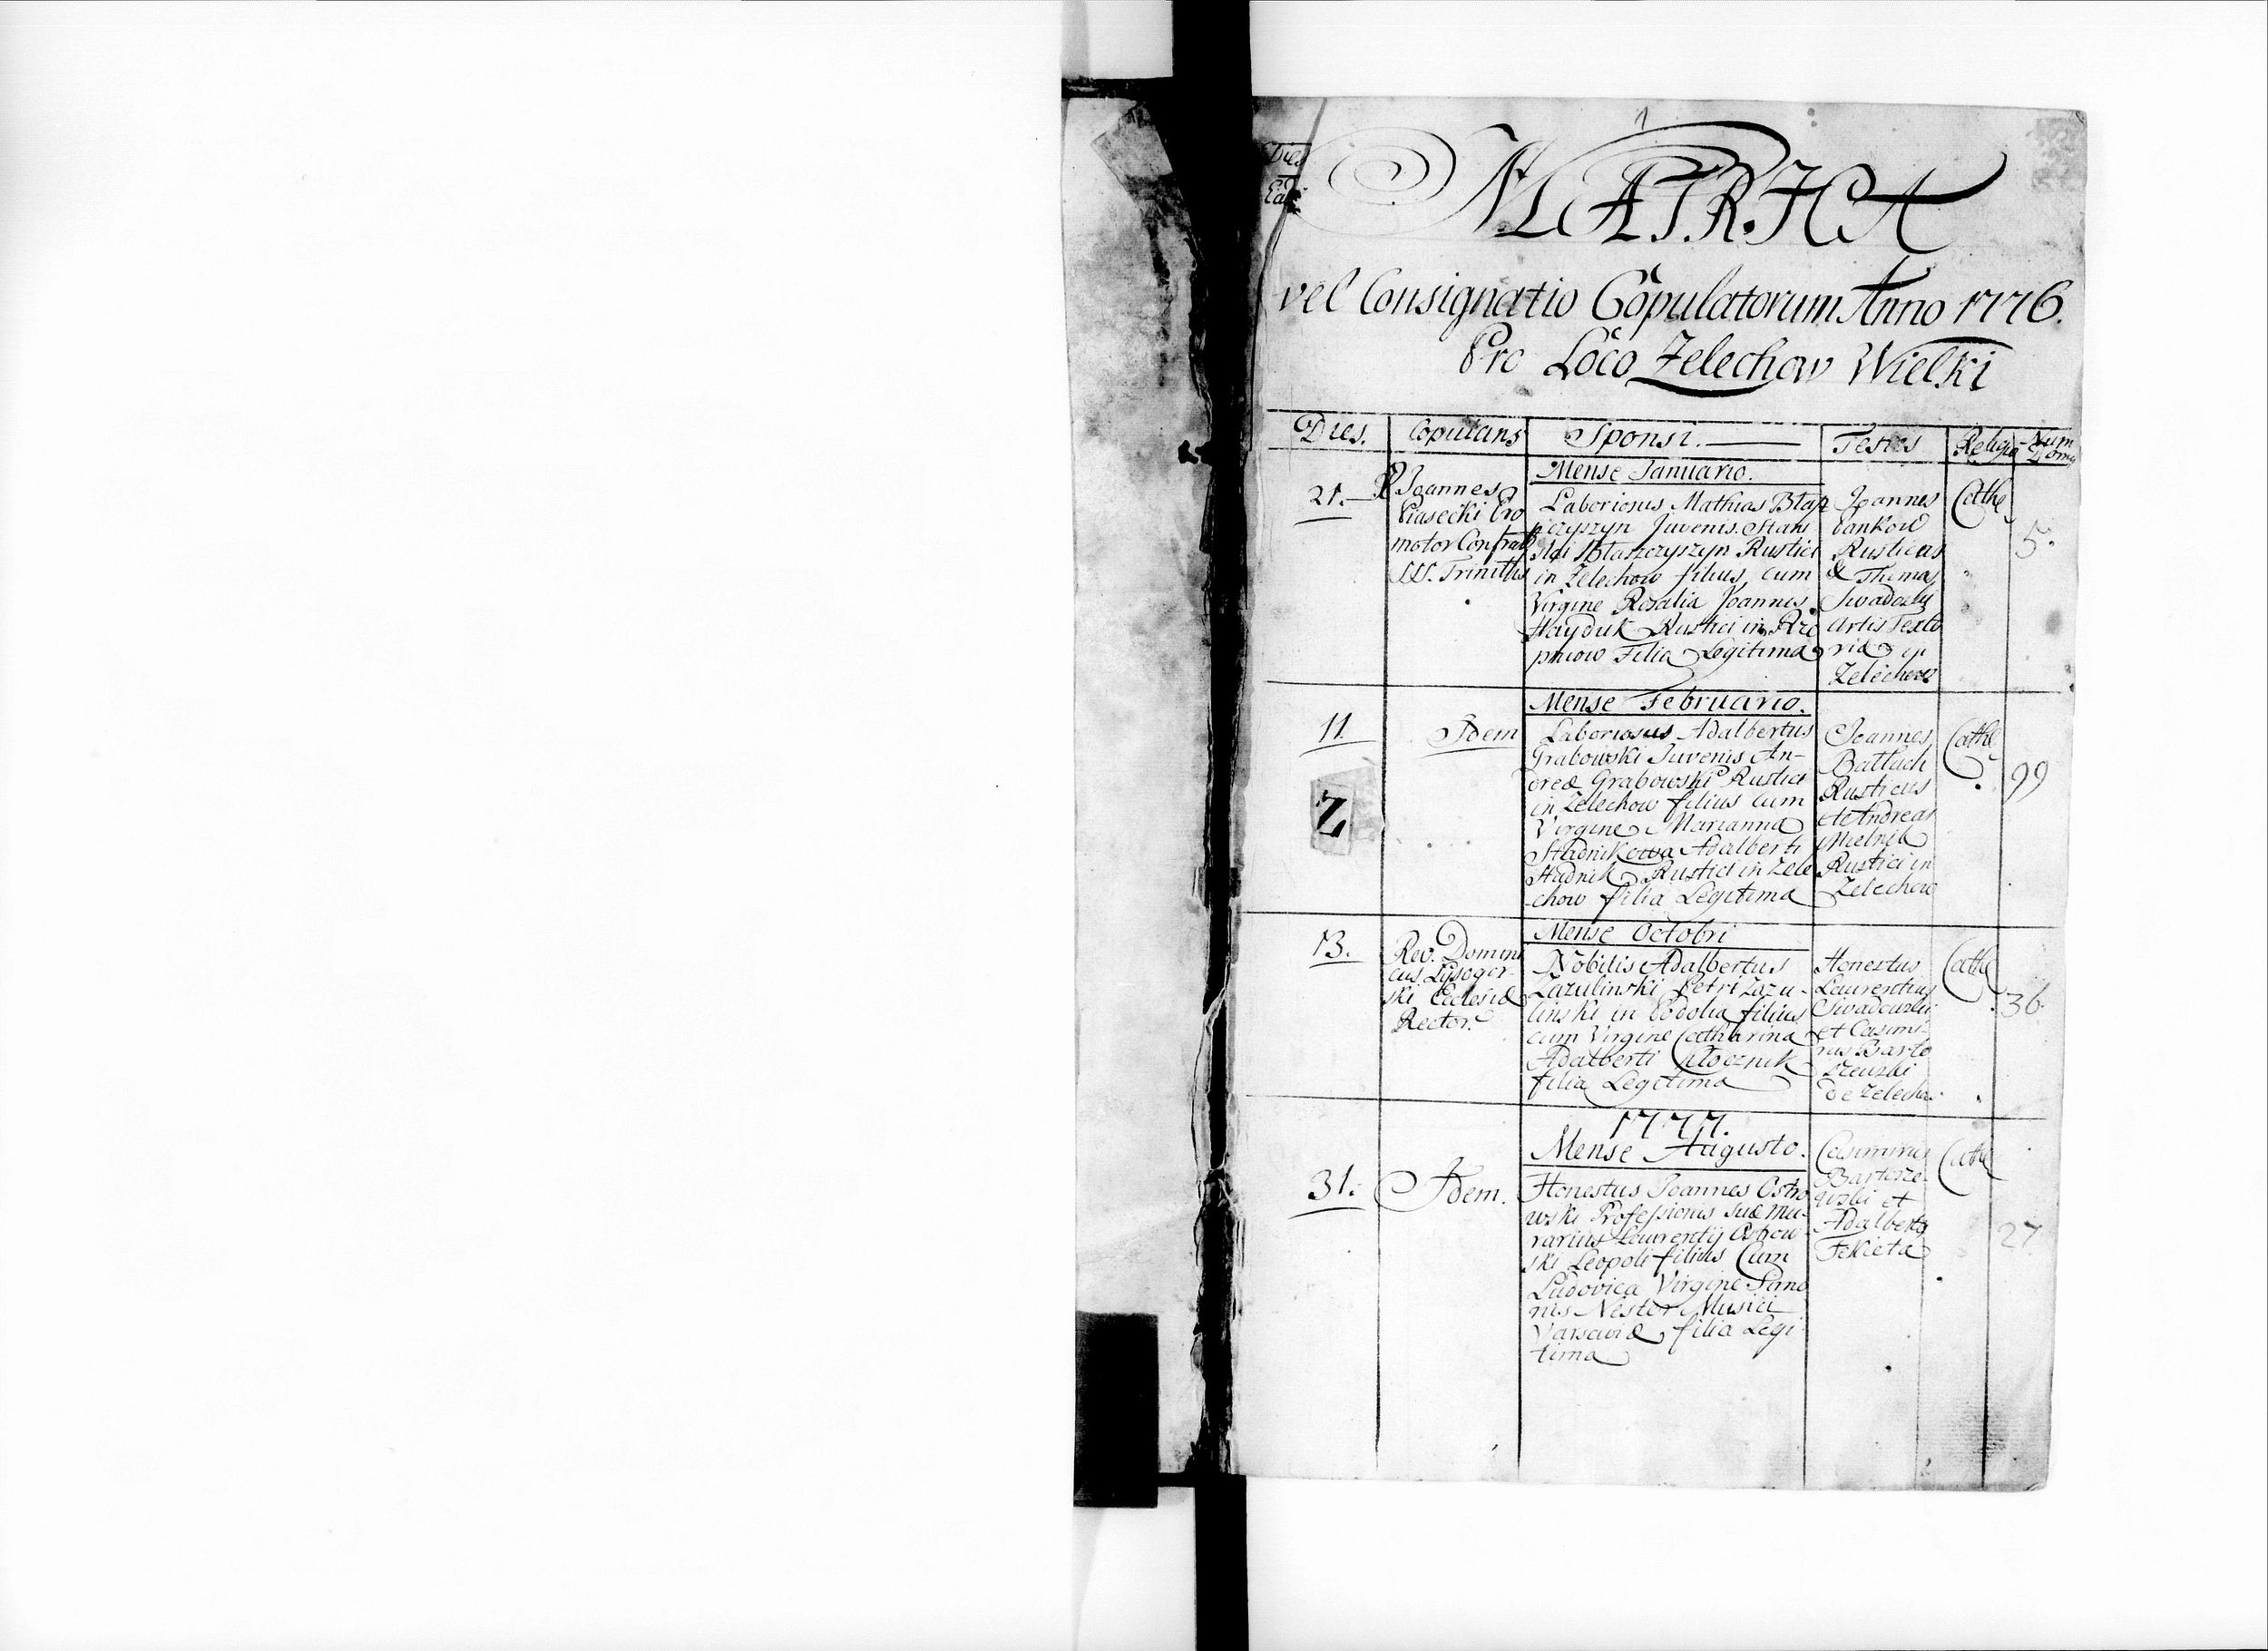 1
METRICA
vel Consignatio Copulatorum Anno 1776.
Pro Loco Zelechow Wielki
Dies. Copulans Sponsi. Testes Religio Num Domus
Mense Januario.
21.
R Joannes
Piasecki Pro
motor Confrat
SS. Trinittis
Laboriosus Mathias Błasz
czyszyn Juvenis Stani
slai Błaszczyszyn Rustici
in Zelechow filius, cum
Virgine Rosalia Joannes
Hayduk Rustici in Rze
pniow Filia Legitima
Joannes
Pankow
Rusticus
& Thomas
Swadozky
Artis Texto
ria in
Zelechow
Cathe
5.
Mense Februario.
11
Idem
Laboriosus Adalbertus
Grabowski Juvenis An-
dreæ Grabowski Rustici
in Zelechow filius cum
Virgine Marianna
Stadnikowa Adalberti
Stadnik Rustici in Zele
chow filia Legitima
Joannes
Battuch
Rusticus
et Andreas
Mielnik
Rustici in
Zelechow
Cathe
99
Z
Mense Octobri
13.
Rev. Domini
cus Lysogor-
ski Ecclesiæ
Rector.
Nobilis Adalbertus
Zazulinski Petri Zazu-
linski in Podolia filius
cum Virgine Catharina
Adalberti
filia Legitima
Honestus
Laurentius
et Casimi-
rus Barto
szewski
de Zelechow
Cathe
36
1777.
Mense Augusto.
31.
Idem.
Honestus Joannes Ostro
wski Professionis suæ Mu-
rarius Laurentij Ostrow-
ski Leopoli filius Cum
Ludovica Virgine
Nestor Musici
Varsaviæ filia Legi
tima
Casimirus
Bartosze-
wski et
Adalbertus
Fekieta
Cathe
27